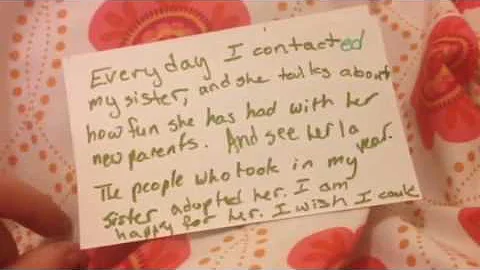 Everyday I contacted
my sister, and she talks about
how fun she has had with her
new parents. And see her 1 a
year.
The people who took in my
sister adopted her. I am
happy for her. I wish I could